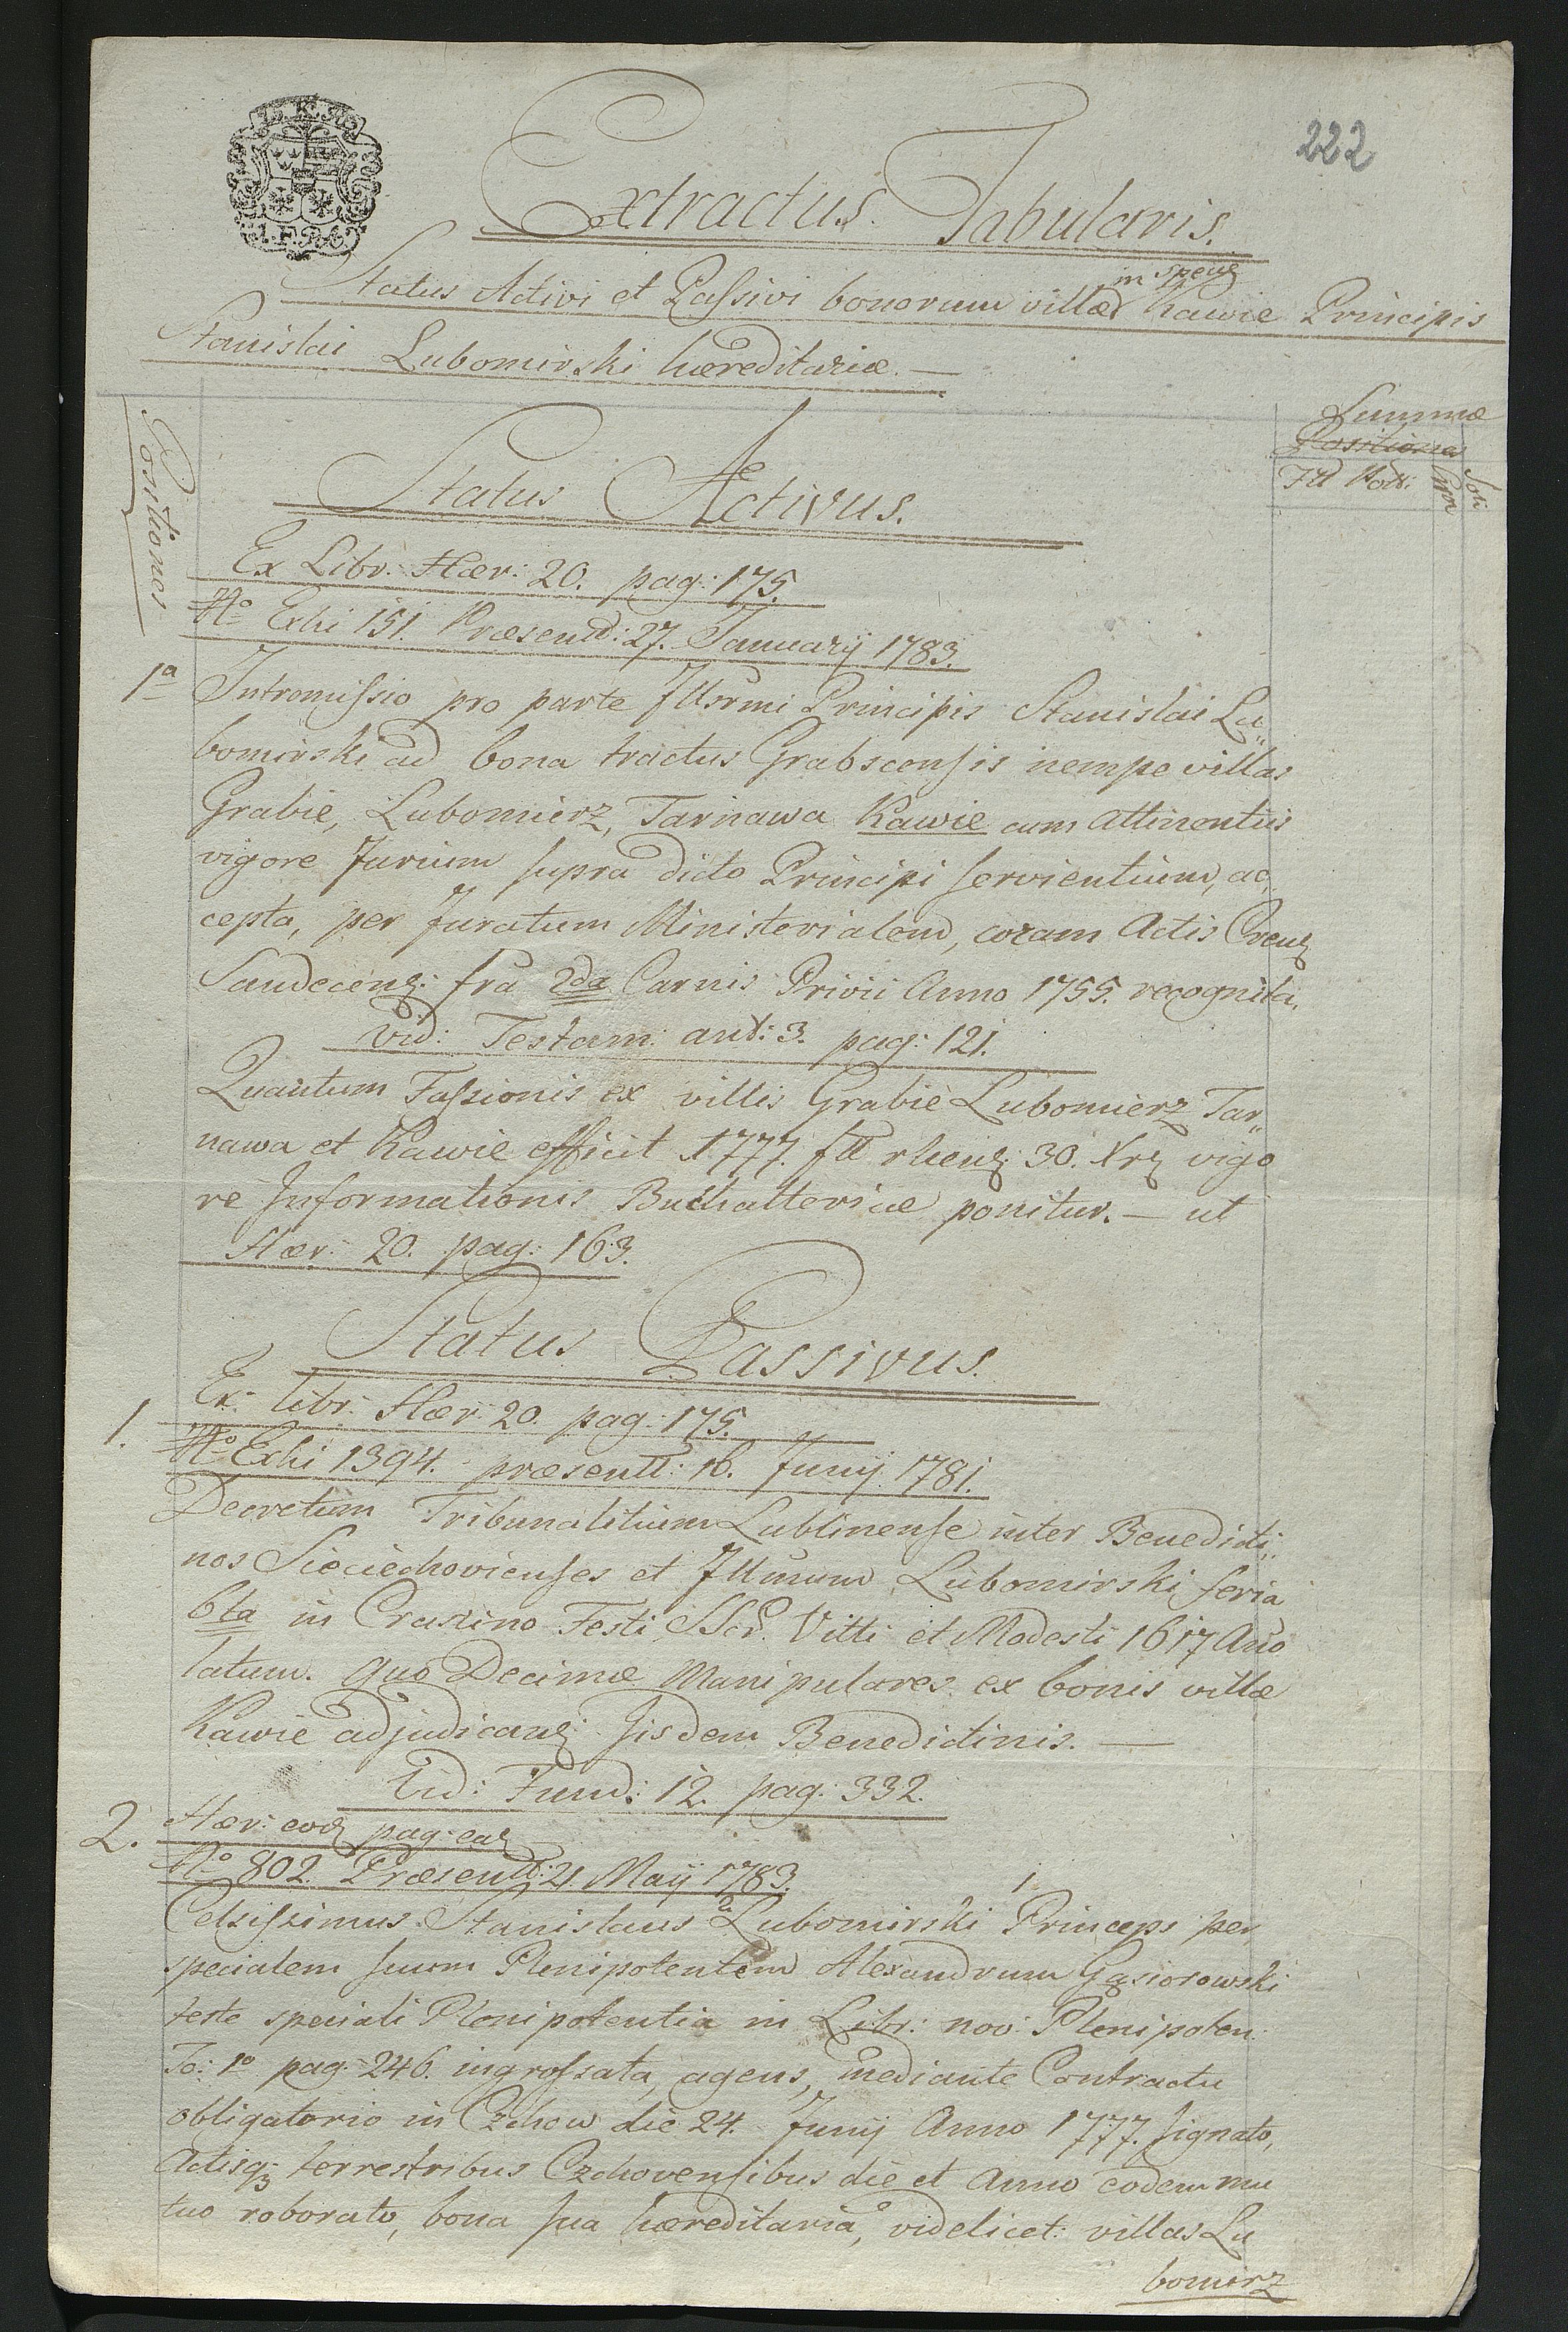 222
Extractus Tabularis.
Status Activi et Passivi bonorum villæ in specie Rawie Principis
Stanislai Lubomirski hæreditariæ. —
Summæ
Positiones
Positiones
Status Activus.
Ex Libr: Hær: 20. pag: 175.
No Exhi 151. Præsentt: 27. Januarij 1783.
1a Intromissio pro parte Illsrmi Principis Stanislai Lu„
bomirski ad bona tractus Grabscensis nempe villas
Grabie, Lubomierz, Tarnawa Rawie cum attinentiis
vigore Jurium supra dicto Principi servientium, ac„
cepta, per Juratum Ministerialem, coram Actis
Sandecens: fra 2da Carnis Privii Anno 1755. recognita.
Vid: Testam: ant: 3. pag: 121.
Quantum Fassionis ex villis Grabie Lubomierz Tar„
nawa et Rawie efficit 1777. fll rhens: 30. Xr vigo
re Informationis Buchhalteriæ ponitur. — ut
Hær: 20. pag: 163.
Status Passivus.
1. Ex libr: Hær: 20. pag: 175.
No Exhi 1394. præsentt: 16. Junij 1781.
Decretum Tribunalitium Lublinense inter Benedicti„
nos Sieciechovienses et Illmum Lubomirski feria
6ta in Crastino Festi SSor. Vitti et Modesti 1617 Ano
latum. quo Decimæ Manipulares ex bonis villæ
Rawie adjudicant: Iisdem Benedictinis. —
Vid: Fund: 12. pag: 332.
2. Hær: eod pag: ead
No 802. Præsentt: 21. Maij 1783.
Celsissimus Stanislaus Lubomirski Princeps per
specialem suum Plenipotentem Alexandrum Gąsiorowski
teste speciali Plenipotentia in Libr: nov: Plenipoten:
To: 1o pag: 246. ingrossata, agens, mediante Contractu
obligatorio in Czchow die 24. Junij Anno 1777. signato,
Actisq; terrestribus Czchovensibus die et Anno eodem mu
tuo roborato, bona sua hæreditaria, videlicet: villas Lu
bomirz